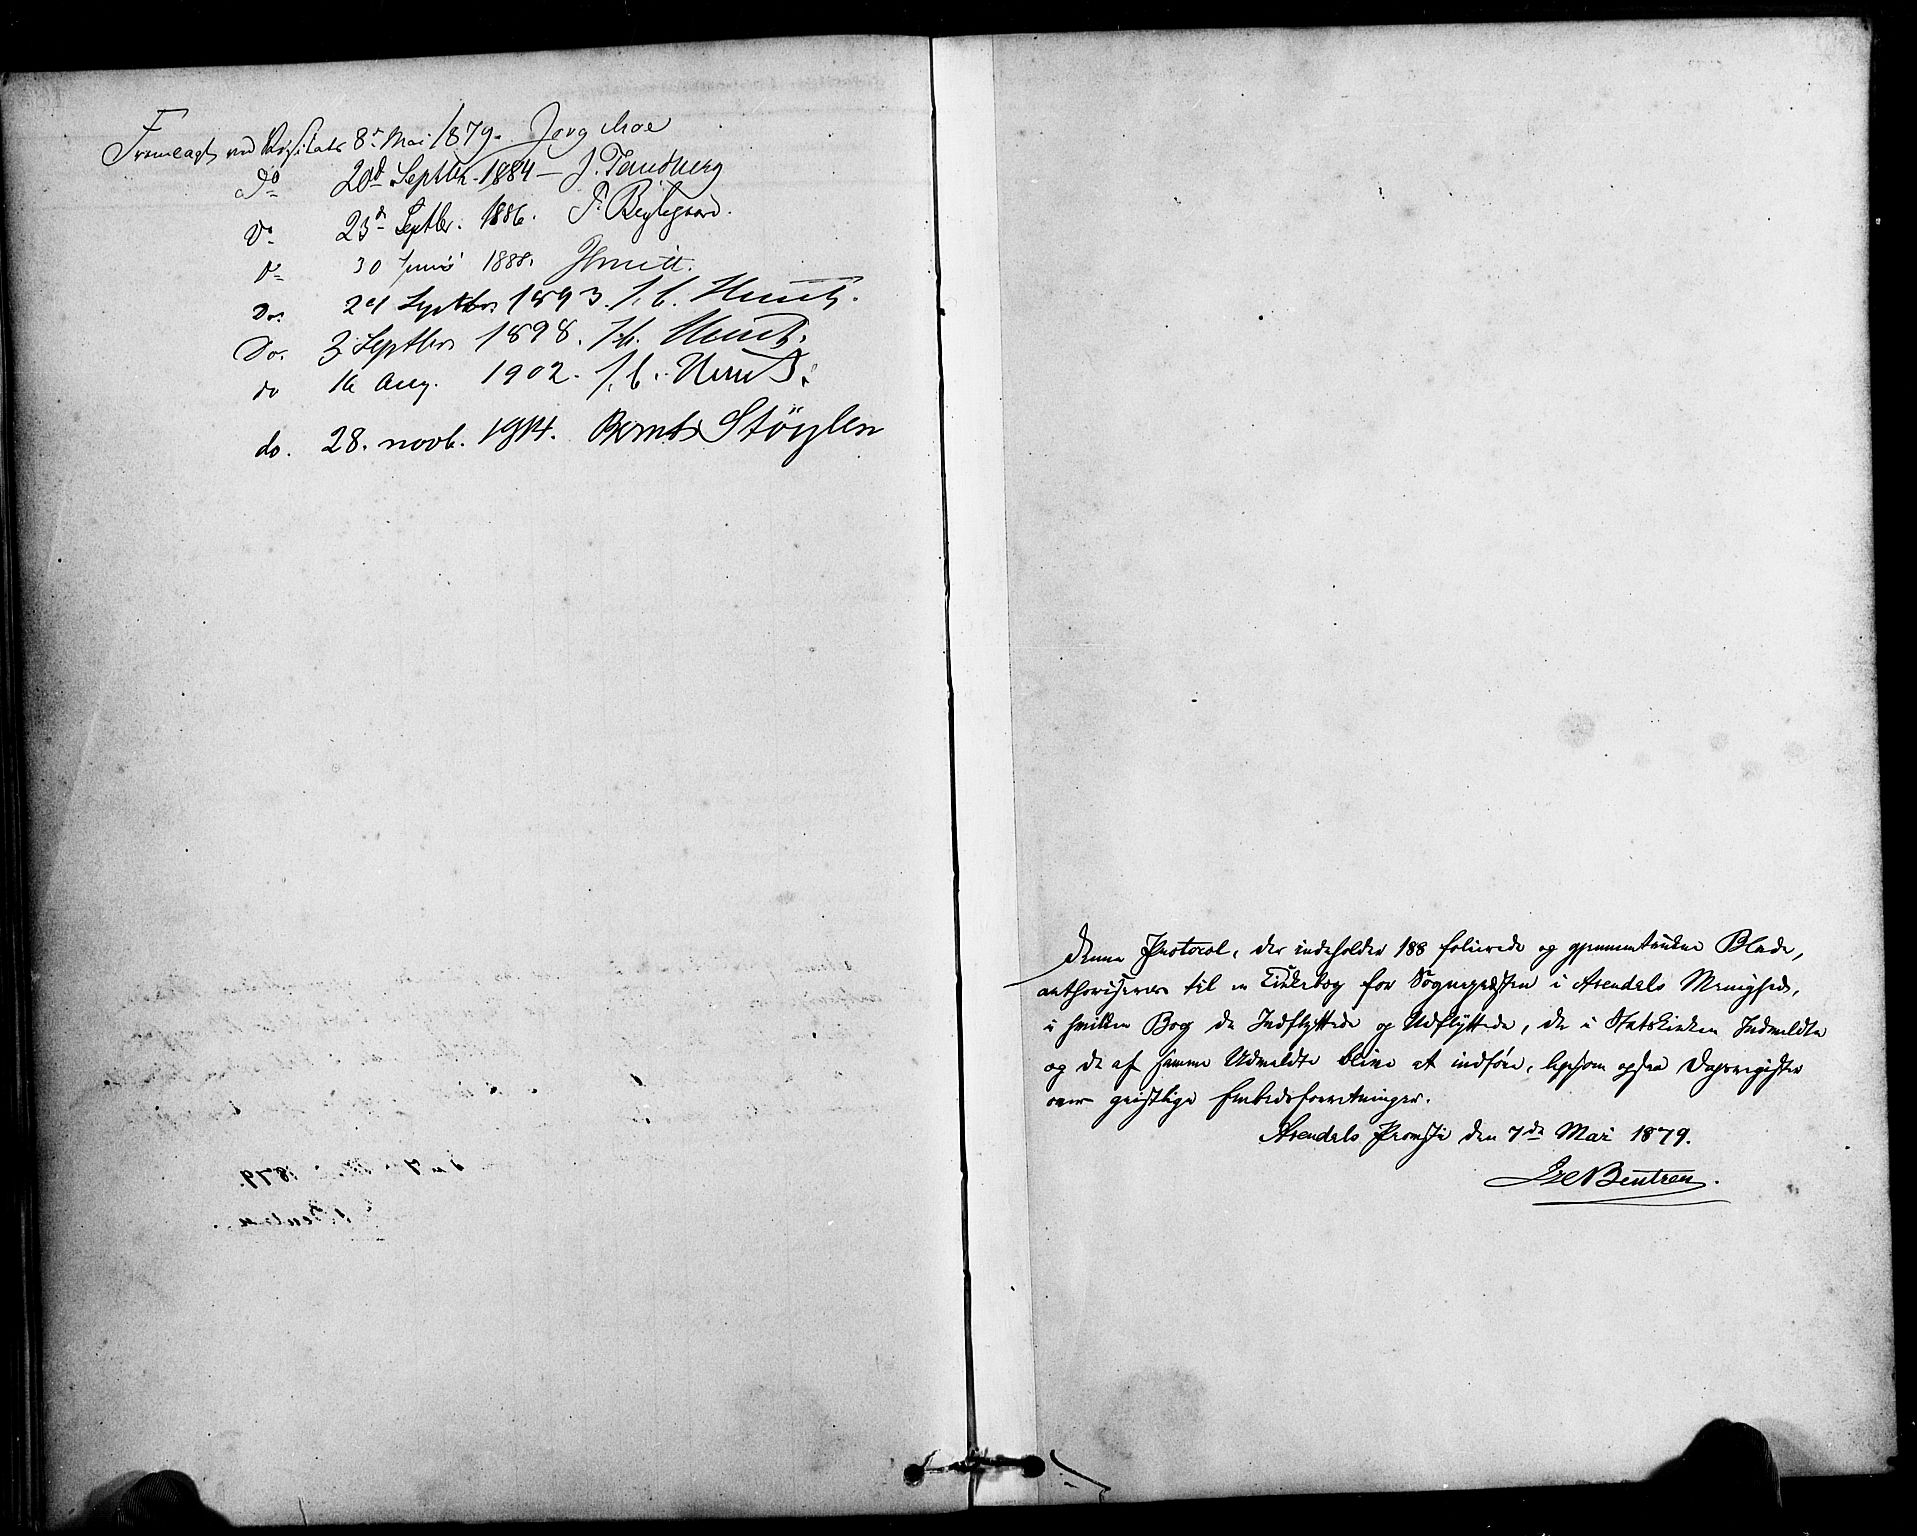 Fremlagt ved Visitats 8de Mai 1879. Jørg. Moe
Do 20de Septbr. 1884 – J. Tandberg
Do 23de Septbr. 1886.
Do 30 Juni 1888.
Do. 24 Septbr 1893. J. C. Heuch.
Do. 3 Septbr 1898. J. C. Heuch.
do 16 Aug. 1902. J. C. Heuch.
do. 28. novb. 1914. Bernt Støylen
Denne Protocol, der indeholder 188 folierede og gjennemtrukne Blade,
authoriseres til en Kirkebog for Sognepræsten i Arendals Menighed,
i hvilken Bog de Indflyttede og Udflyttede, de i Statskirken Indmeldte
og de af samme Udmeldte blive at indføre, ligesom ogsaa Dagsregister
over geistlige Embedsforretninger.
Arendals Provsti den 7de Mai 1879.
Bentzen.